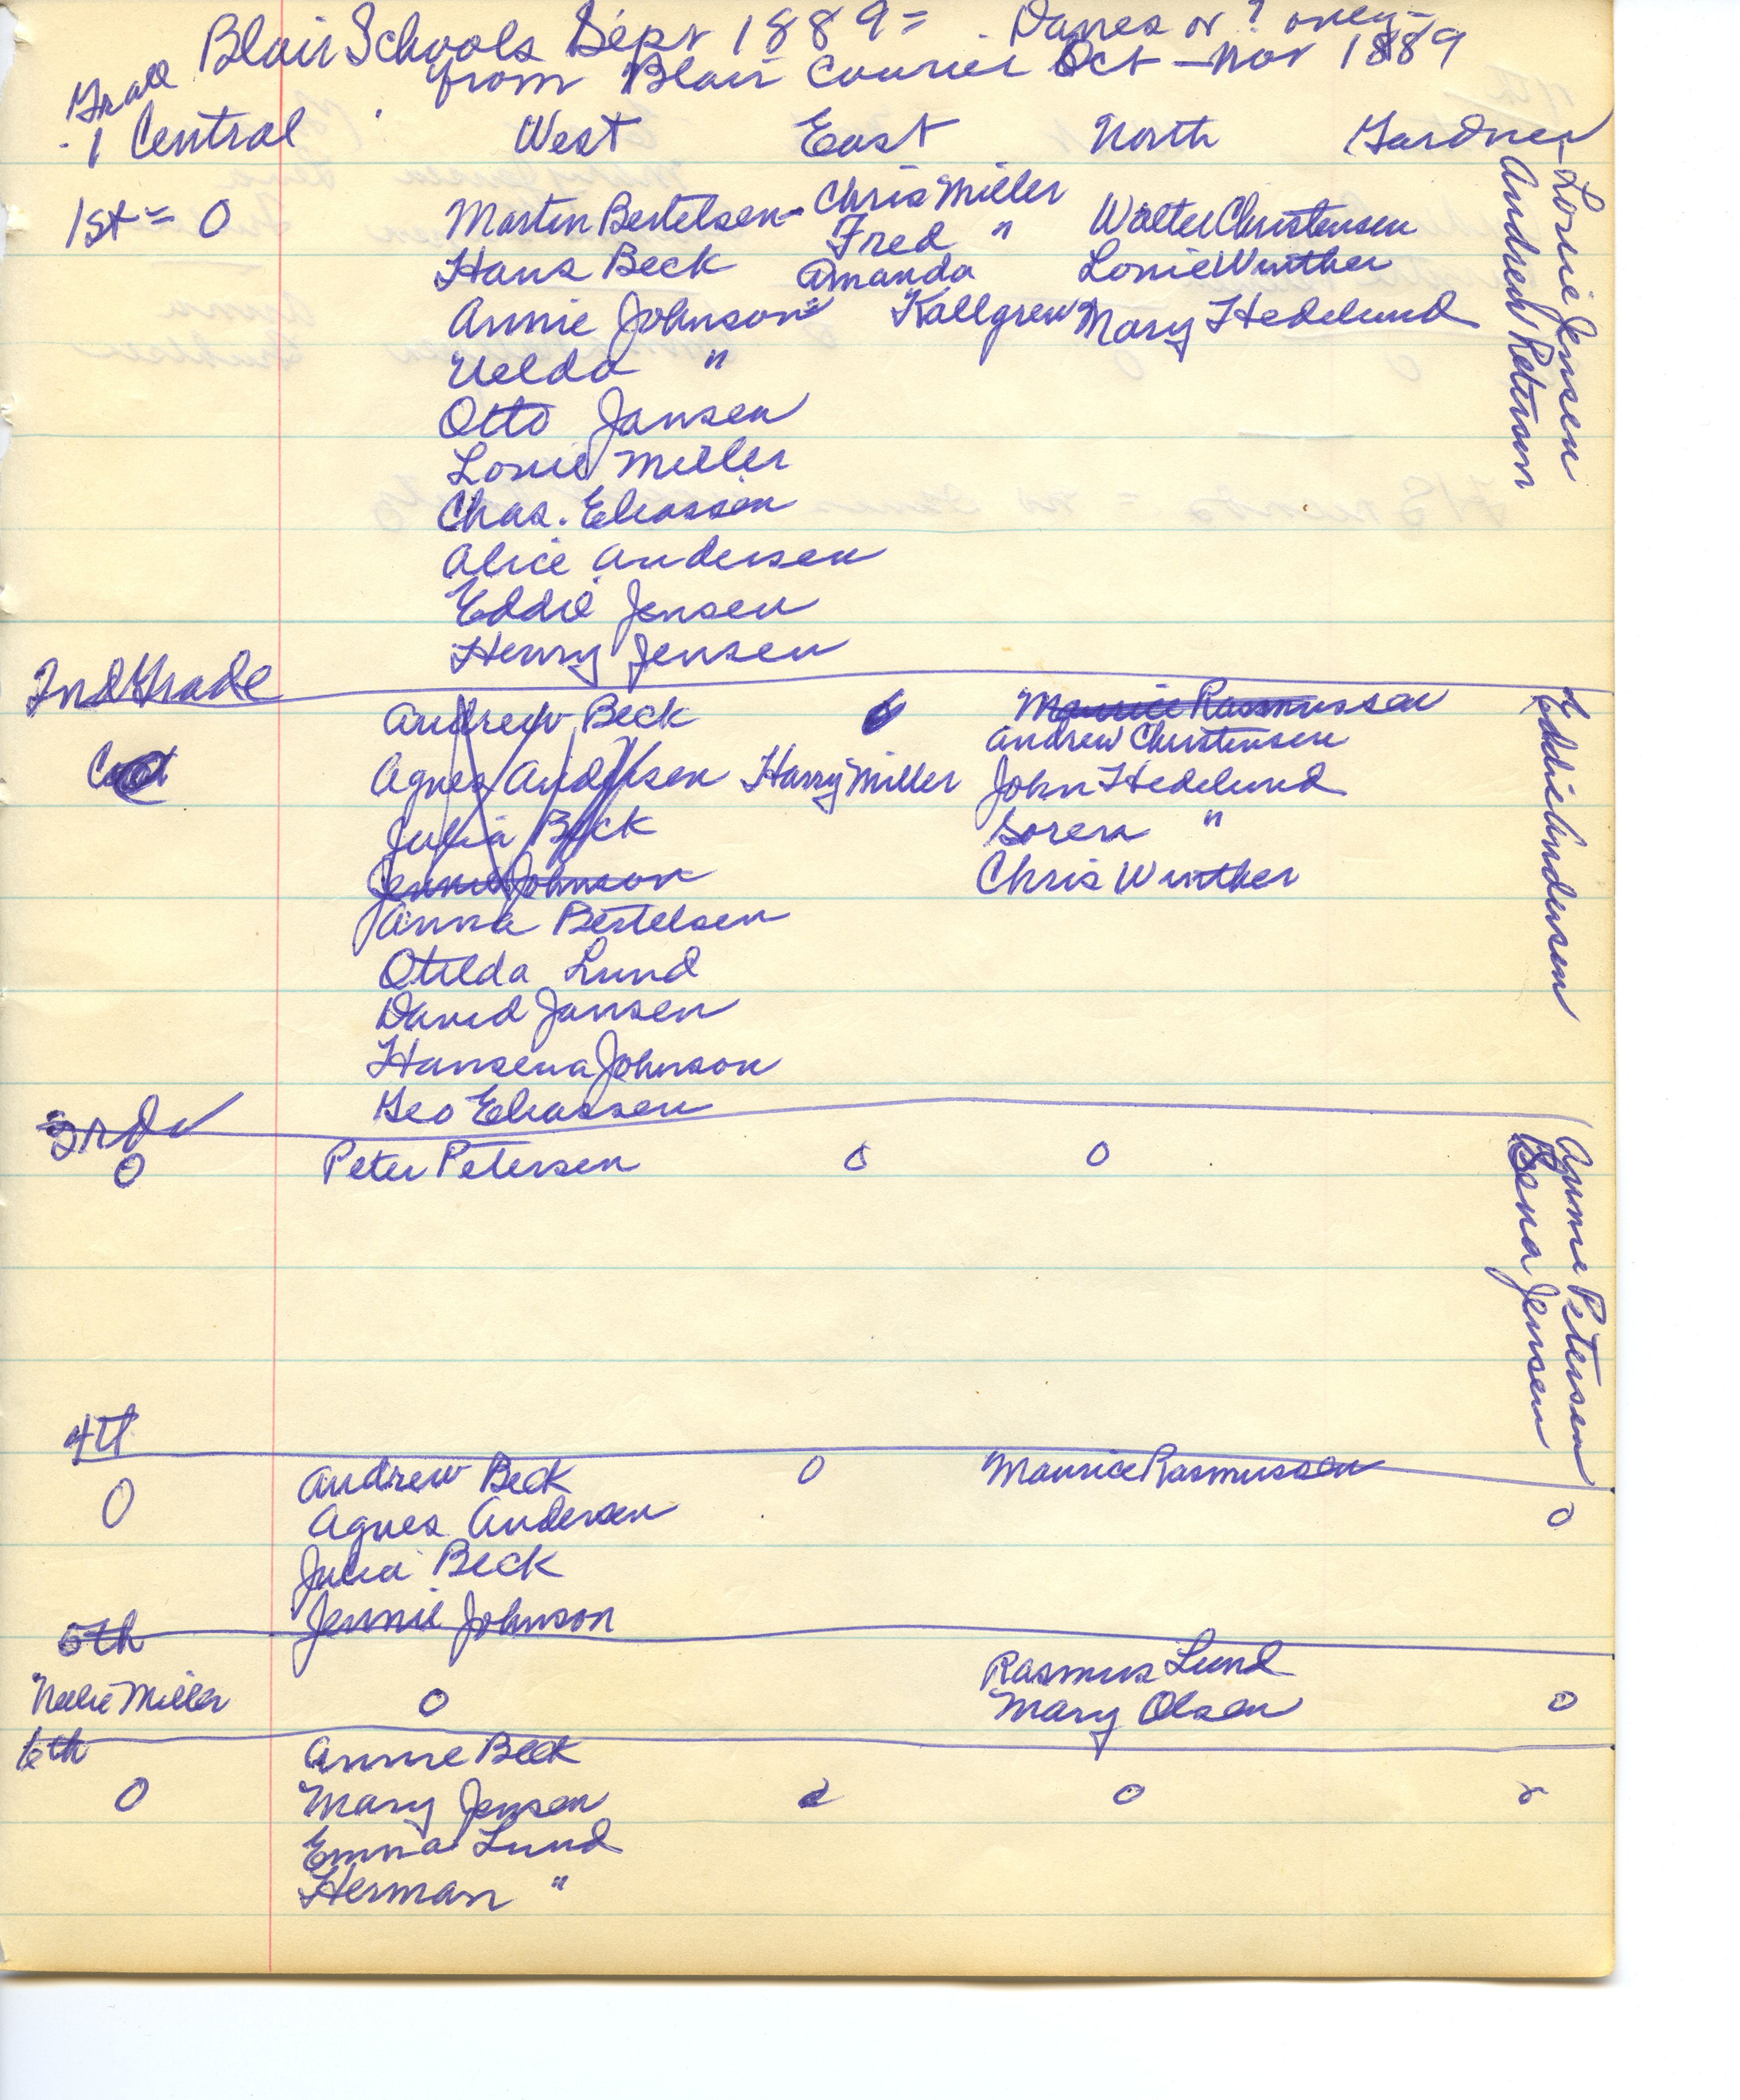 Blair Schools Sept 1889 = Danes or ? only -
from Blair Courier Oct - Nov 1889
Grade
1 Central West East North Gardner
1st = 0 Martin Bertelsen - Chris Miller Walter Christensen
Fred "
Hans Beck Amanda Louie Winther
Annie Johnson Kallgren Mary Hedelund
Louie Jensen
Andrew Peterson
"
Otto Jansen
Louie Miller
Chas. Eliassen
Alice Andersen
Eddie Jensen
Henry Jensen
2nd Grade
Andrew Beck 0 Maurice Rasmussen
Andrew Christensen
Agnes Andersen Harry Miller John Hedelund
Julia Beck Soren "
Jennie Johnson Chris Winther
Anna Bertelsen
Otilda Lund
David Jansen
Hansena Johnson
Geo Eliassen
Eddie Andersen
3rd
0 Peter Petersen 0 0
Annie Petersen
Jensen
4th
0 Andrew Beck 0 Maurice Rasmussen
Agnes Andersen 0
Julia Beck
Jennie Johnson
5th
Rasmus Lund
Nellie Miller 0 Mary Olsen 0
6th Annie Beck
0 Mary Jensen 0 0
Emma Lund
Herman "